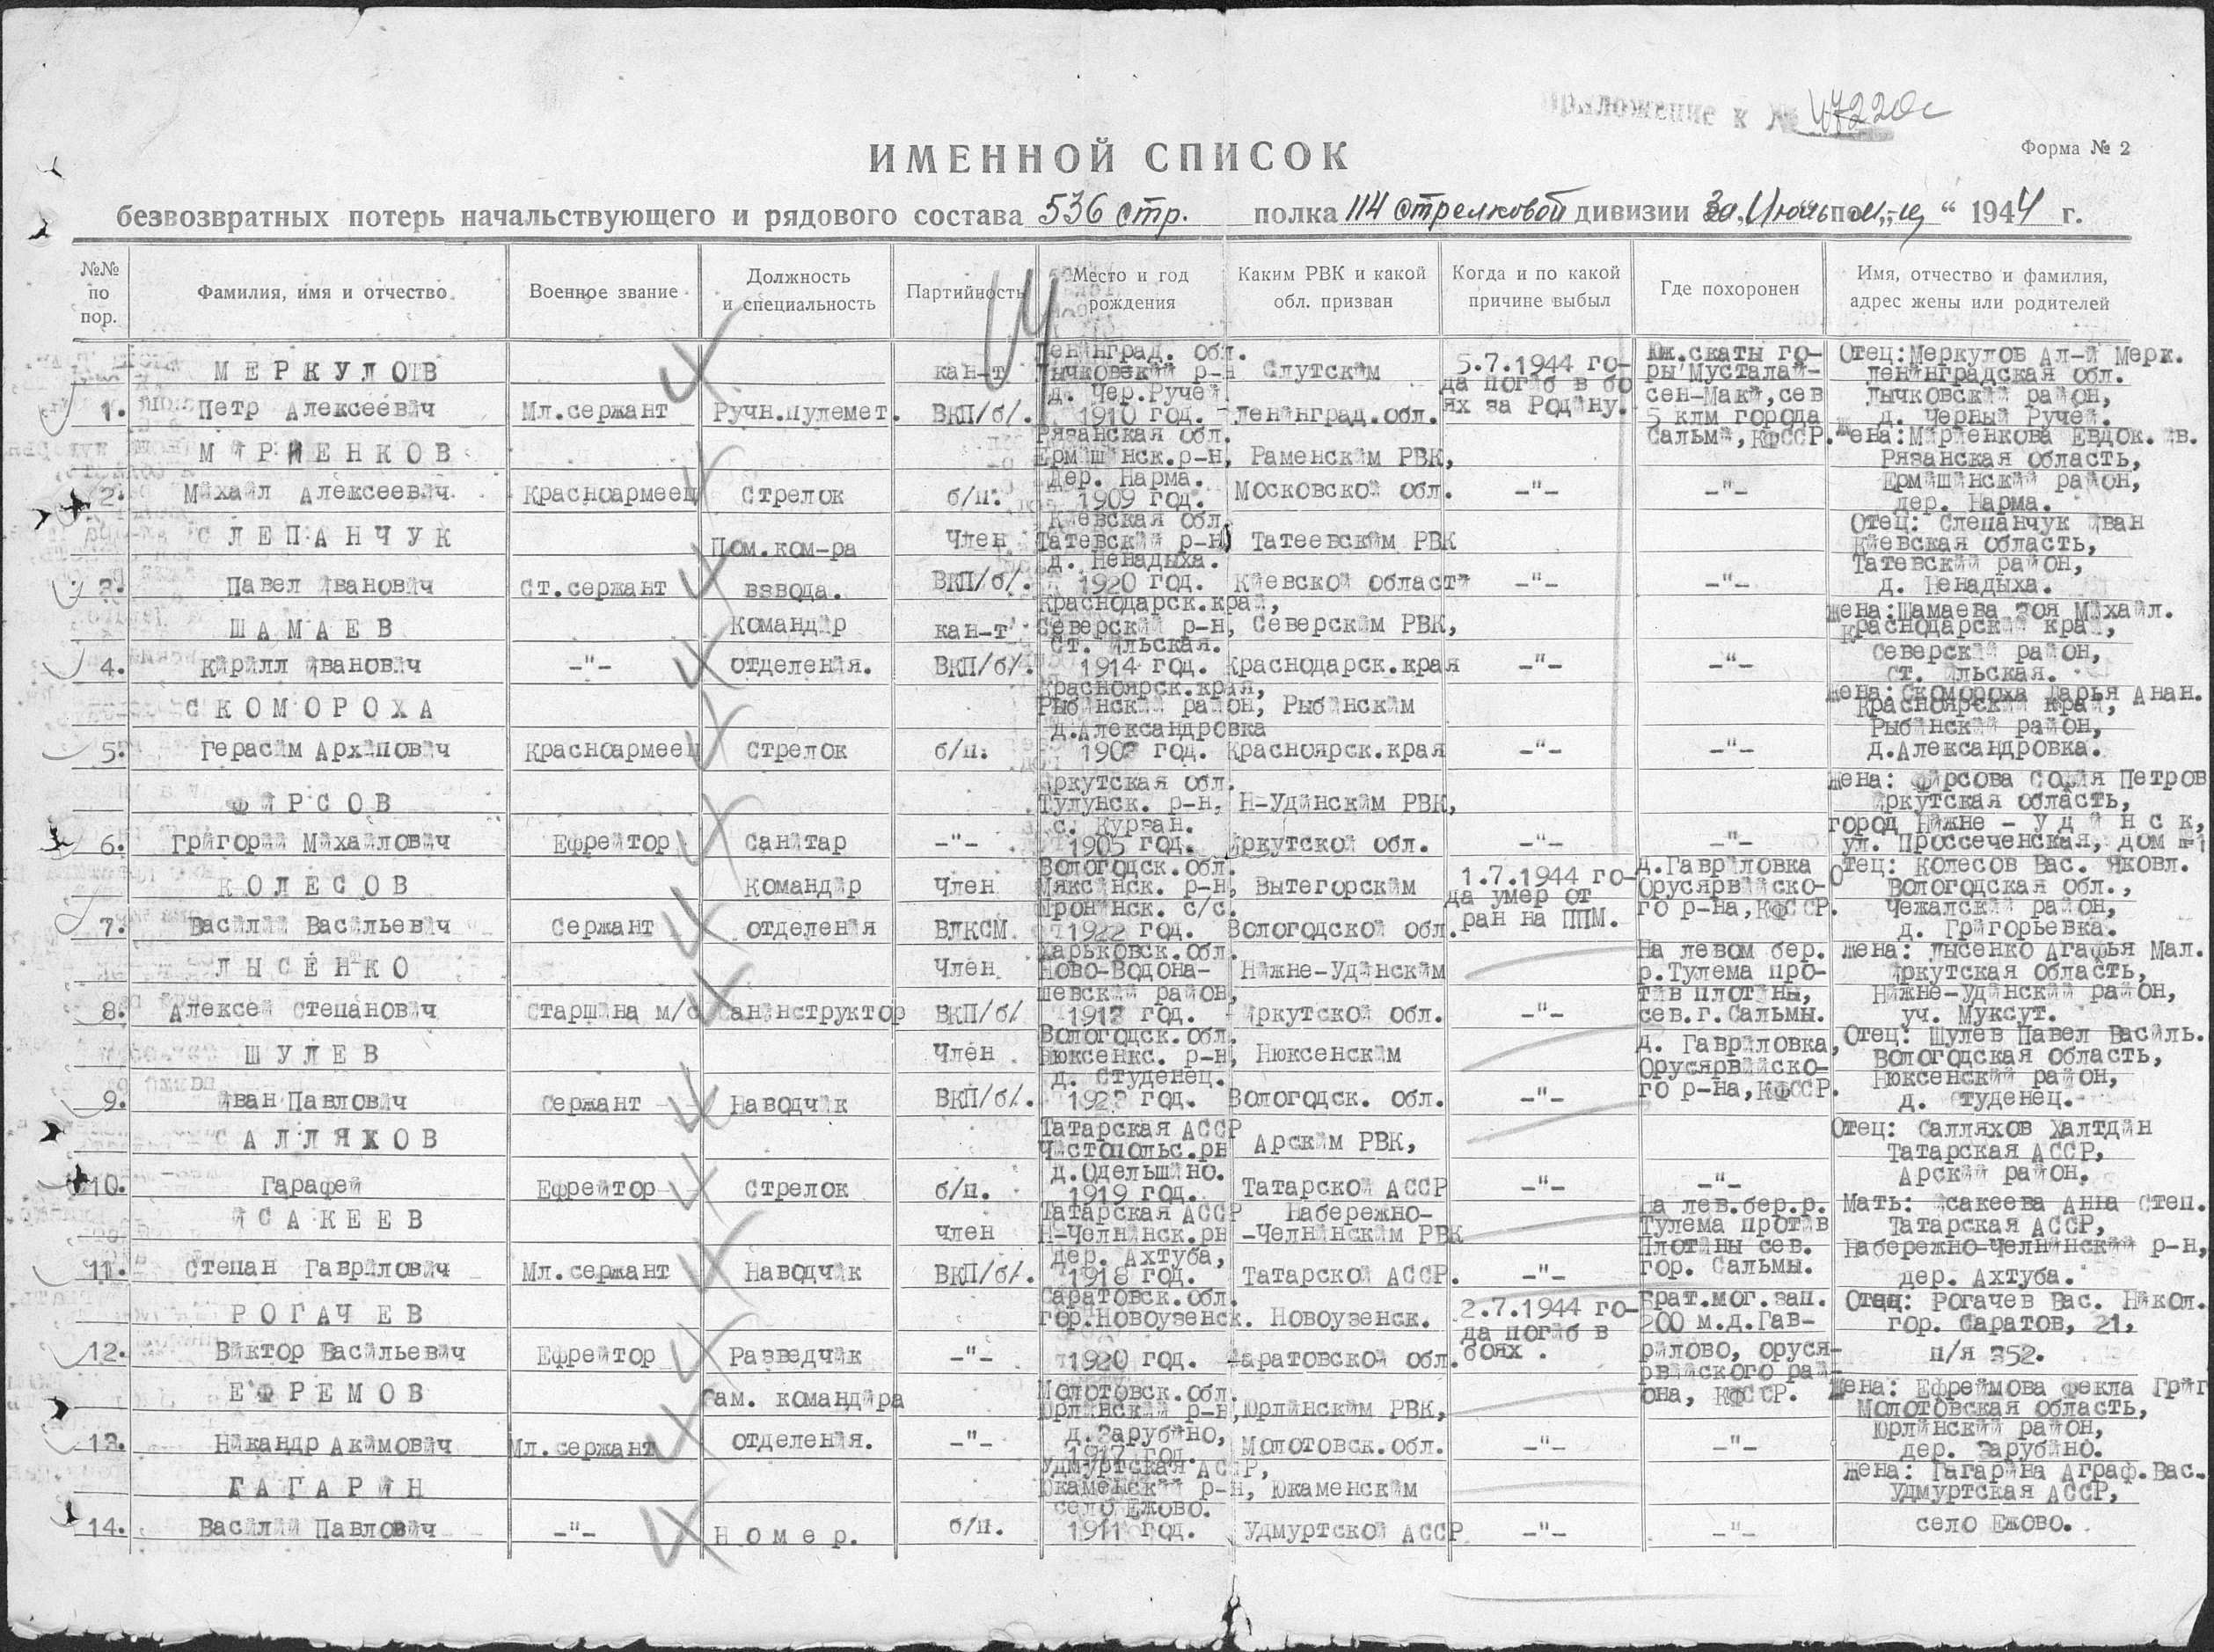 Приложение к № 47220с
ИМЕННОЙ СПИСОК
Форма № 2
безвозвратных потерь начальствующего и рядового состава 536 стр. полка 114 стрелковой дивизии за Июль м-ц 1944 г.
№№ по пор.
Фамилия, имя и отчество
Военное звание
Должность и специальность
Партийность
Место и год рождения
Каким РВК и какой обл. призван
Когда и по какой причине выбыл
Где похоронен
Имя, отчество и фамилия, адрес жены или родителей
1. МЕРКУЛОВ Петр Алексеевич
Мл.сержант
Ручн.пулемет.
кан-т ВКП/б/.
Ленинград. обл. Лычковский р-н д. Чер.Ручей 1910 год.
Слутским Ленинград.обл.
5.7.1944 года погиб в боях за Родину.
Юж.скаты горы Мусталайсен-Маки,сев 5 клм города Сальми,КФССР.
Отец:Меркулов Ал-й Мерк. Ленинградская обл. Лычковский район, д. Черный Ручей.
2. МИРИЕНКОВ Михаил Алексеевич
Красноармеец
Стрелок
б/п.
Рязанская обл. Ермишинск.р-н, дер. Нарма. 1909 год.
Раменским РВК, Московской обл.
-"-
-"-
Жена:Мириенкова Евдок. Ив. Рязанская область, Ермишинский район, дер. Нарма.
3. СЛЕПАНЧУК Павел Иванович
Ст.сержант
Пом.ком-ра взвода.
Член ВКП/б/.
Киевская обл. Татевский р-н д. Ненадыха. 1920 год.
Татеевским РВК Киевской области
-"-
-"-
Отец: Слепанчук Иван Киевская область, Татевский район, д. Ненадыха.
4. ШАМАЕВ Кирилл Иванович
-"-
Командир отделения.
кан-т ВКП/б/.
Краснодарск.край, Северский р-н, ст. Ильская. 1914 год.
Северским РВК, Краснодарск.края
-"-
-"-
Жена:Шамаева Зоя Михайл. Краснодарский край, Северский район, ст. Ильская.
5. СКОМОРОХА Герасим Архипович
Красноармеец
Стрелок
б/п.
Красноярск.края, Рыбинский район, д.Александровка год.
Рыбинским Красноярск.края
-"-
-"-
Жена:Скомороха Дарья Анан. Красноярский край, Рыбинский район, д.Александровка.
6. ФИРСОВ Григорий Михайлович
Ефрейтор
Санитар
-"-
Иркутская обл. Тулунск. р-н, с. Курзан. 1905 год.
Н-Удинским РВК, Иркутской обл.
-"-
-"-
Жена: Фирсова София Петров Иркутская область, город Нижне - Удинск, ул. Проссеченская, дом
7. КОЛЕСОВ Василий Васильевич
Сержант
Командир отделения
Член ВЛКСМ.
Вологодск.обл. Мяксинск. р-н, Пронинск. с/с. 1922 год.
Вытегорским Вологодской обл.
1.7.1944 года умер от ран на ППМ.
д.Гавриловка Орусярвийского р-на,КФССР.
Отец: Колесов Вас. Яковл. Вологодская обл., Чежалский район, д. Григорьевка.
8. ЛЫСЕНКО Алексей Степанович
Старшина м/с
Санинструктор
Член ВКП/б/
Харьковск.обл. Ново-Водонашевский район, год.
Нижне-Удинским Иркутской обл.
-"-
На левом бер. р.Тулема против плотины, сев.г.Сальмы.
Жена: Лысенко Агафья Мал. Иркутская область, Нижне-Удинский район, уч. Муксут.
9. ШУЛЕВ Иван Павлович
Сержант
Наводчик
Член ВКП/б/.
Вологодск.обл. Нюксенкс. р-н, д. Студенец. год.
Нюксенским Вологодск. обл.
-"-
д. Гавриловка, Орусярвийского р-на,КФССР.
Отец: Шулев Павел Василь. Вологодская область, Нюксенский район, д. Студенец.
10. САЛЛЯХОВ Гарафей
Ефрейтор
Стрелок
б/п.
Татарская АССР Чистопольс.рн д.Одельшино. 1919 год.
Арским РВК, Татарской АССР
-"-
-"-
Отец: Салляхов Халтдин Татарская АССР, Арский район.
11. ИСАКЕЕВ Степан Гаврилович
Мл.сержант
Наводчик
член ВКП/б/.
Татарская АССР Н-Челнинск.рн дер. Ахтуба, 1918 год.
Набережно-Челнинским РВК Татарской АССР.
-"-
На лев.бер.р. Тулема против плотины сев. гор. Сальмы.
Мать: Исакеева Анна Степ. Татарская АССР, Набережно-Челнинский р-н, дер. Ахтуба.
12. РОГАЧЕВ Виктор Васильевич
Ефрейтор
Разведчик
-"-
Саратовск.обл. гор.Новоузенск. 1920 год.
Новоузенск. Саратовской обл.
2.7.1944 года погиб в боях.
Брат.мог.зап. 200 м.д.Гаврилово, орусярвийского района, КФССР.
Отец: Рогачев Вас. Никол. гор. Саратов, 21, п/я 352.
13. ЕФРЕМОВ Никандр Акимович
Мл.сержант
Зам. командира отделения.
-"-
Молотовск.обл. Юрлинский р-н, д.Зарубино, 1917 год.
Юрлинским РВК, Молотовск.обл.
-"-
-"-
Жена: Ефреимова Фекла Григ Молотовская область, Юрлинский район, дер. Зарубино.
14. ГАГАРИН Василий Павлович
-"-
Номер.
б/п.
Удмуртская АССР, Юкаменский р-н, село Ежово. 1911 год.
Юкаменским Удмуртской АССР
-"-
-"-
Жена: Гагарина Аграф.Вас. Удмуртская АССР, село Ежово.